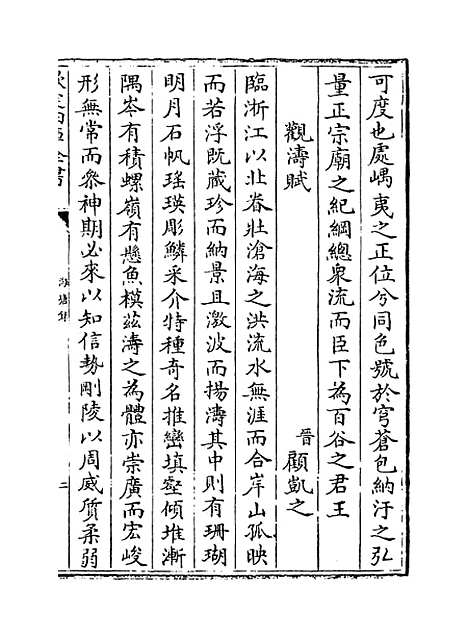 可度也處嵎夷之正位兮同色號於穹蒼包納汙之弘
量正宗廟之紀綱總衆流而臣下為百谷之君王
觀濤賦
晉顧凱之
臨浙江以北眷壯滄海之洪流水無涯而合岸山孤映
而若浮既藏珍而納景且激波而揚濤其中則有珊瑚
明月石帆瑤瑛彫鱗采介特種奇名推巒填壑傾堆漸
隅岑有積螺嶺有懸魚模茲濤之為體亦崇廣而宏峻
形無常而叅神期必來以知信勢剛陵以周威質柔弱
欽定四庫全書
二